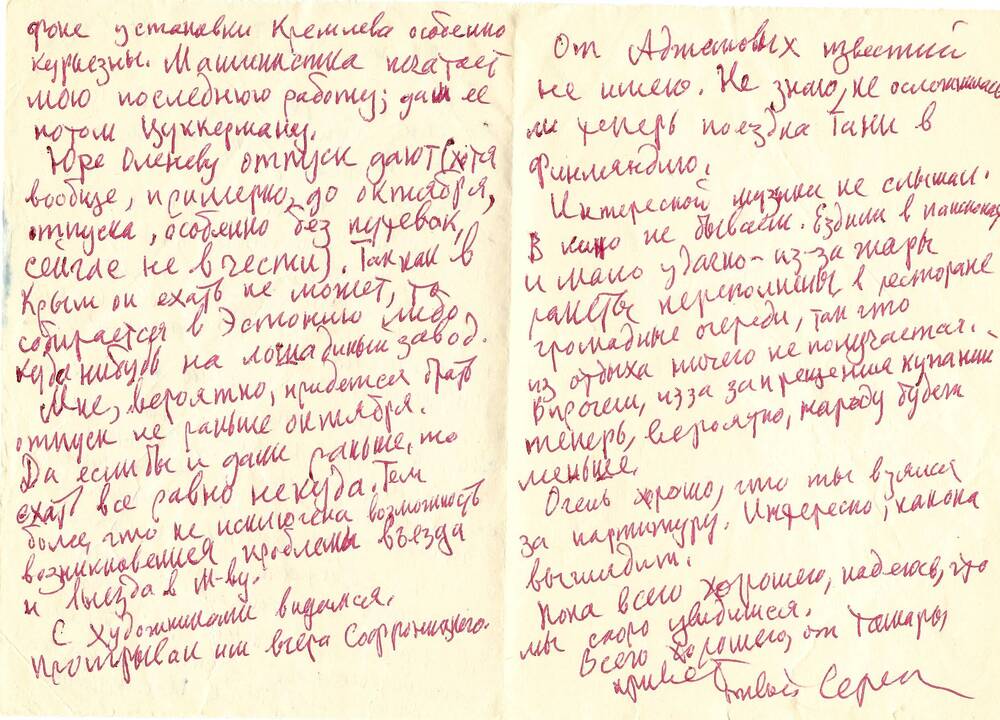 фоне установки Кремлева особенно
курьезны. Машинистка печатает
мою последнюю работу; дам ее
потом Цуккерману.
Юре Оленеву отпуск дают (хотя
вообще, примерно, до октября,
отпуска, особенно без путевок,
сейчас не в чести). Так как в
Крым он ехать не может, то
собирается в Эстонию либо
куда нибудь на лошадиный завод.
Мне, вероятно, придется брать
отпуск не раньше октября.
Да если бы и дали раньше, то
ехать все равно некуда. Тем
более, что не исключена возможность
возникновения проблемы въезда
и выезда в М-ву.
С Художниками видался.
Проигрывал им вчера Софроницкого.
От известий
не имею. Не знаю, не осложнилась
ли теперь поездка Тани в
Финляндию.
Интересной музыки не слышал.
В кино не бываем. Ездили в пансионат
и мало удачно - из-за жары
ракеты переполнены, в ресторане
громадные очереди, так что
из отдыха ничего не получается.
Впрочем, из за запрещения купаний
теперь, вероятно, народу будет
меньше.
Очень хорошо, что ты взялся
за партитуру. Интересно, как она
выглядит.
Пока всего хорошего, надеюсь, что
мы скоро увидимся.
Всего хорошего, от Тамары
привет
Твой